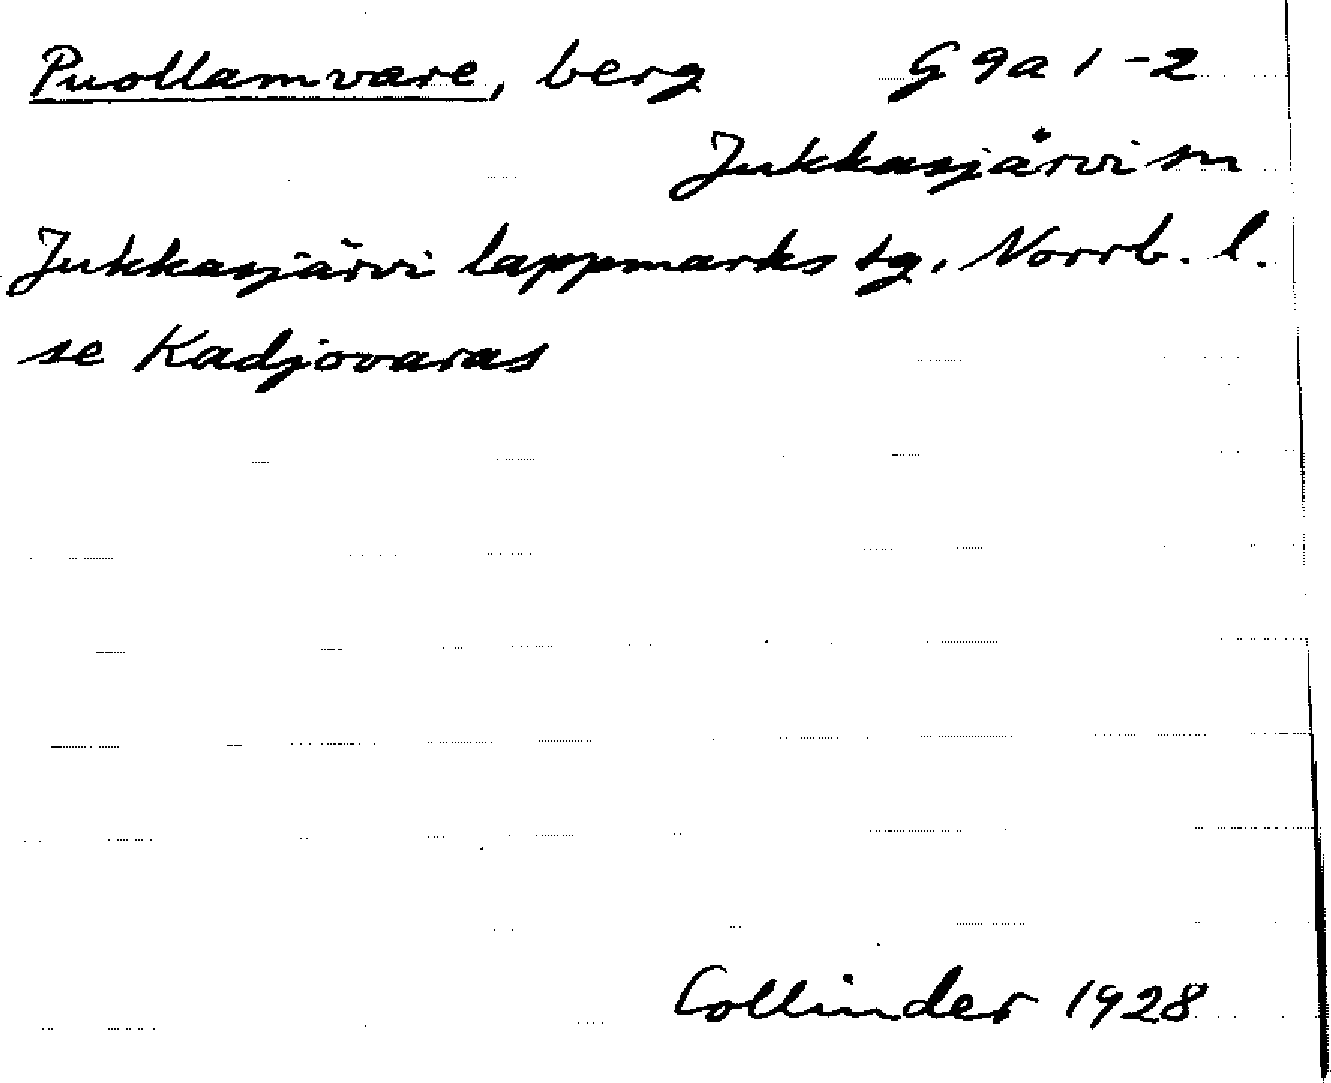 Puollamvare, berg G 9a 1-2
Jukkasjärvi sn
Jukkasjärvi lappmarks tg, Norrb. l.
se Kadjovaras
Collinder 1928